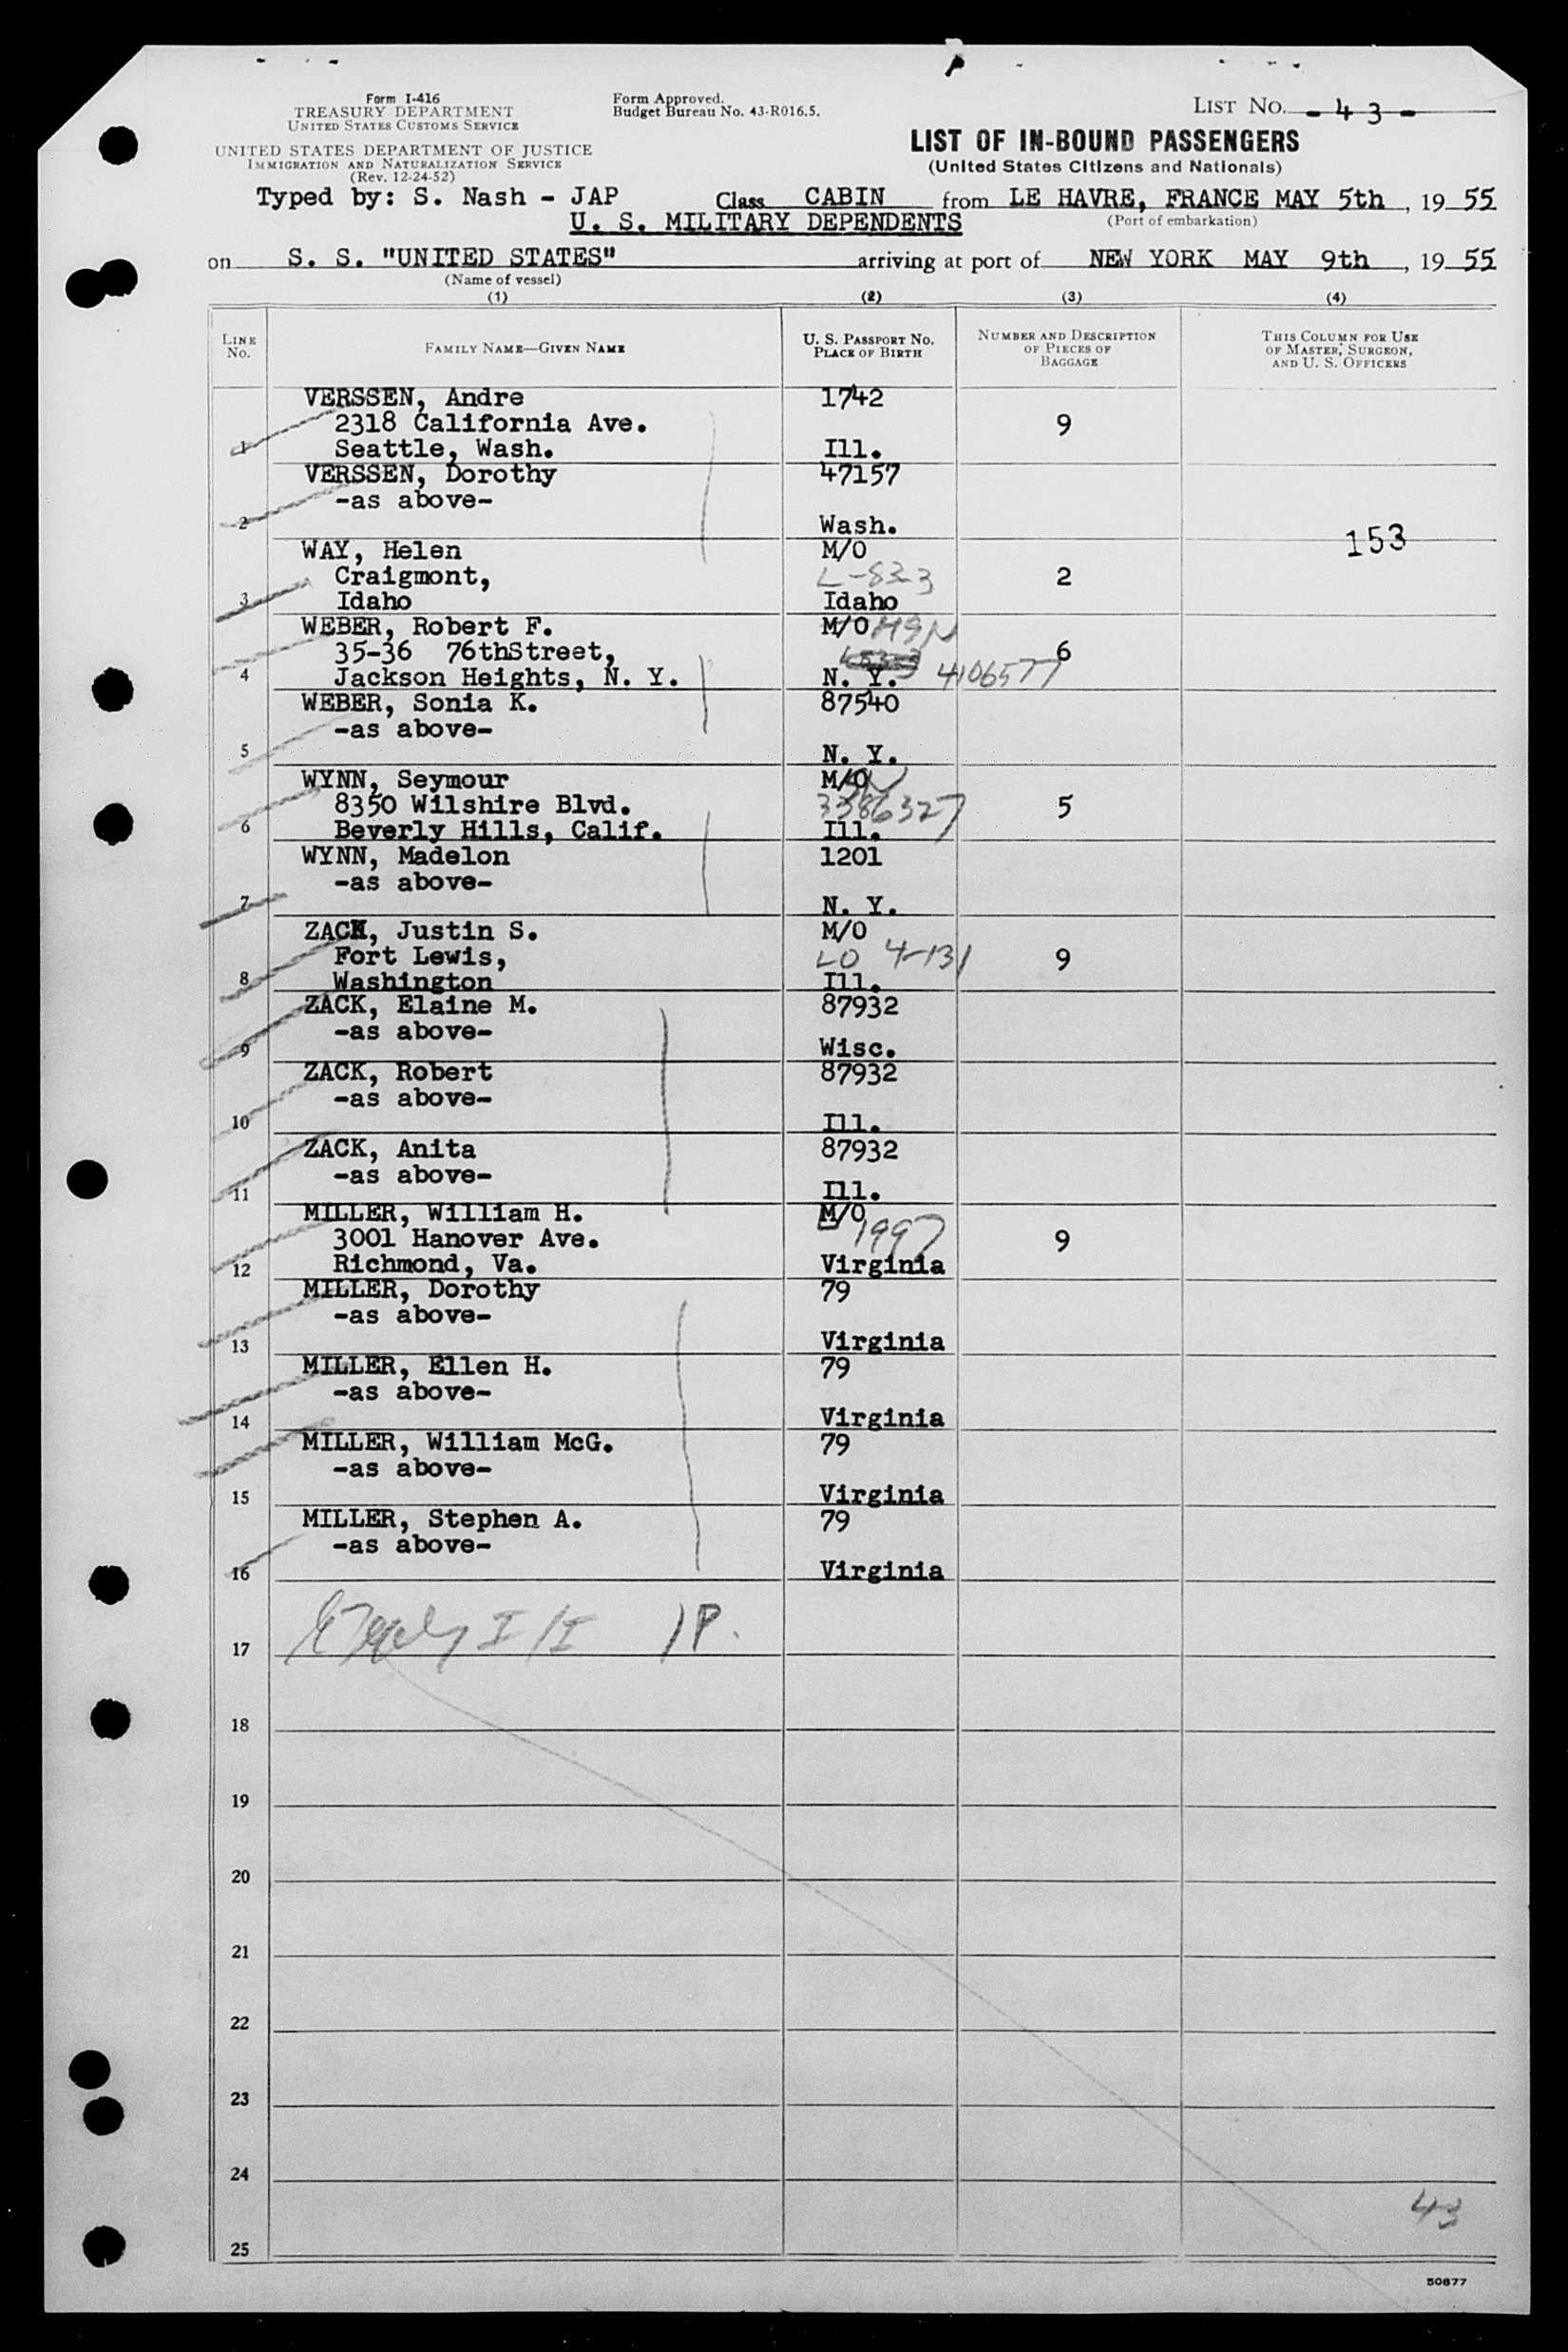 Form I-416
TREASURY DEPARTMENT
UNITED STATES CUSTOMS SERVICE
UNITED STATES DEPARTMENT OF JUSTICE
IMMIGRATION AND NATURALIZATION SERVICE
(Rev. 12-24-52)
Form Approved.
Budget Bureau No. 43-R016.5.
LIST NO. - 43 -
LIST OF IN-BOUND PASSENGERS
(United States Citizens and Nationals)
Typed by: S. Nash - JAP Class CABIN from LE HAVRE, FRANCE MAY 5th, 1955
U. S. MILITARY DEPENDENTS (Port of embarkation)
on S. S. "UNITED STATES" arriving at port of NEW YORK MAY 9th, 1955
(Name of vessel)
(1) (2) (3) (4)
LINE NO. FAMILY NAME—GIVEN NAME U. S. PASSPORT NO. PLACE OF BIRTH NUMBER AND DESCRIPTION OF PIECES OF BAGGAGE THIS COLUMN FOR USE OF MASTER, SURGEON, AND U. S. OFFICERS
VERSSEN, Andre 1742
2318 California Ave. 9
1 Seattle, Wash. Ill.
VERSSEN, Dorothy 47157
-as above-
2 Wash.
153
WAY, Helen M/O
Craigmont, L-823 2
3 Idaho Idaho
WEBER, Robert F. M/O
35-36 76thStreet, 6
4 Jackson Heights, N. Y. N. Y. 4106577
WEBER, Sonia K. 87540
-as above-
5 N. Y.
WYNN, Seymour M/O
8350 Wilshire Blvd. 3386327 5
6 Beverly Hills, Calif. Ill.
WYNN, Madelon 1201
-as above-
7 N. Y.
ZACK, Justin S. M/O
Fort Lewis, LO 4-131 9
8 Washington Ill.
ZACK, Elaine M. 87932
-as above-
9 Wisc.
ZACK, Robert 87932
-as above-
10 Ill.
ZACK, Anita 87932
-as above-
11 Ill.
MILLER, William H. M/O
3001 Hanover Ave. 1997 9
12 Richmond, Va. Virginia
MILLER, Dorothy 79
-as above-
13 Virginia
MILLER, Ellen H. 79
-as above-
14 Virginia
MILLER, William McG. 79
-as above-
15 Virginia
MILLER, Stephen A. 79
-as above-
16 Virginia
I/I 1P.
17
18
19
20
21
22
23
24
43
25
50877